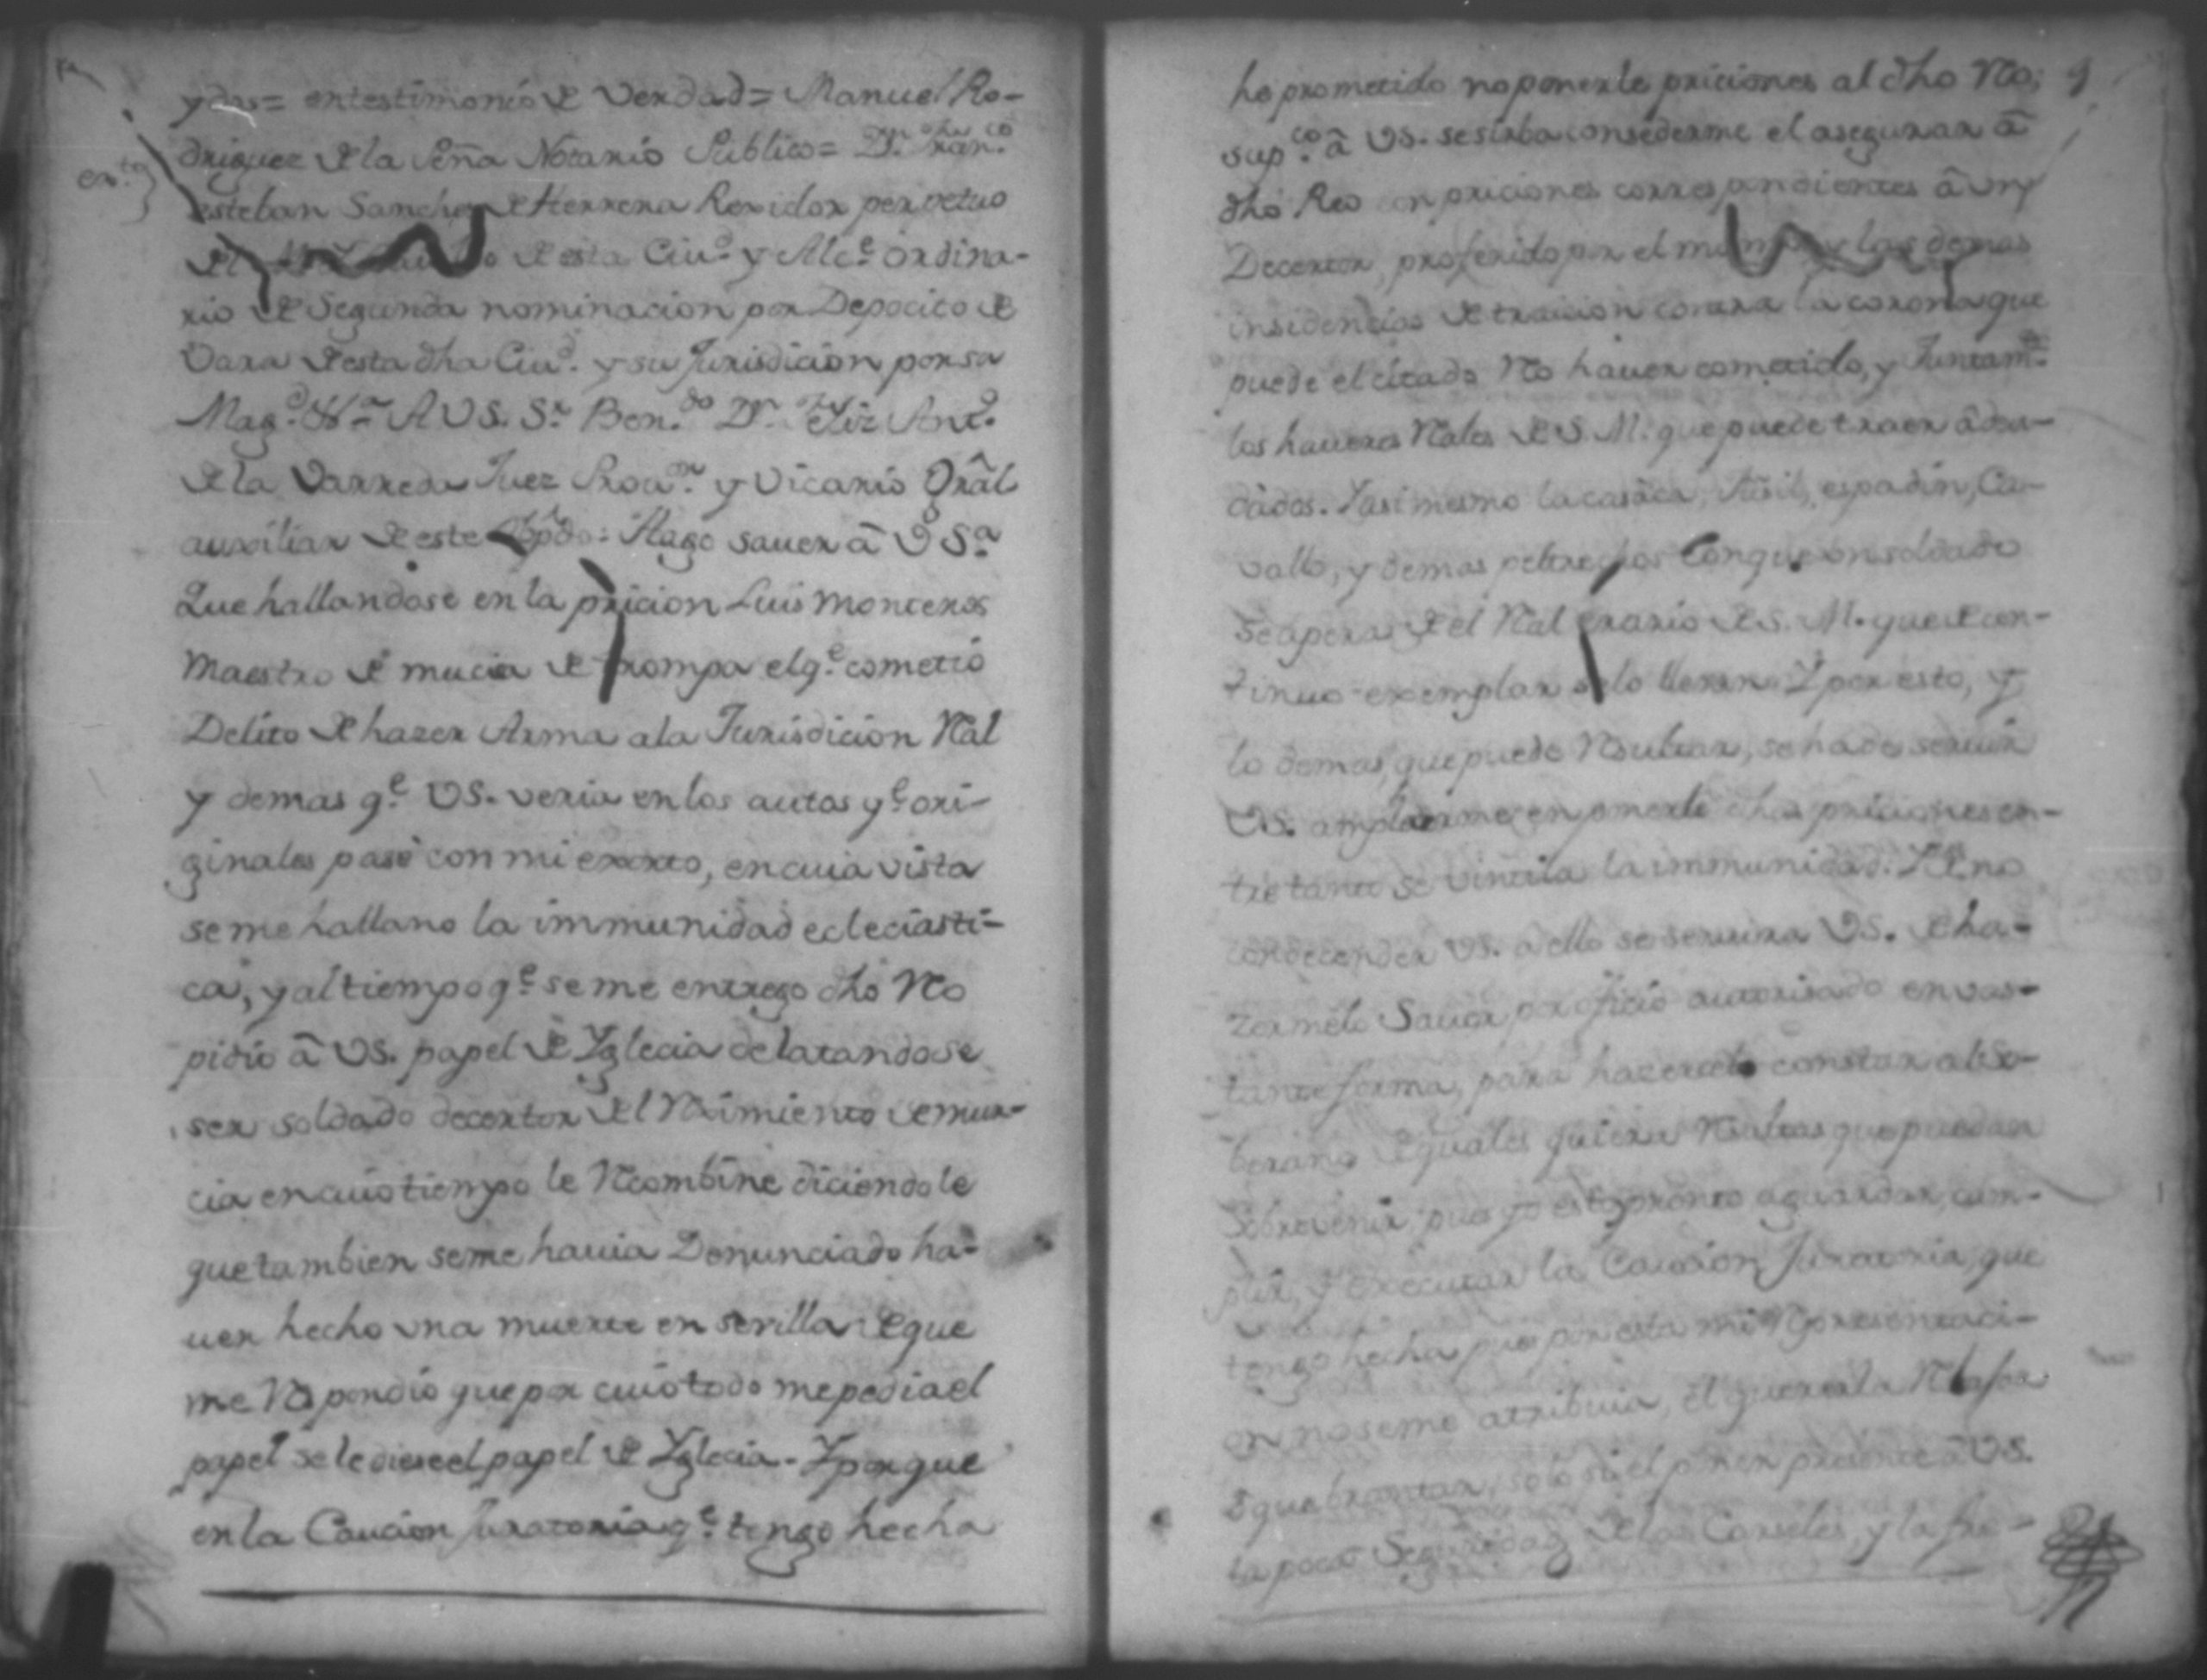 y dos = en testimonio de Verdad = Manuel Ro-
driguez de la Peña Notario Publico = Dn. Fran.co
esteban Sanchez de Herrera Rexidor perpetuo
de esta Ciud. y Alc.e ordina-
rio de Segunda nominacion por Depocito de
Vara de esta dha Ciud. y su Jurisdicion por su
Mag.d &.a A VS. S.r Ben.do Dn. Felix Ant.o
de la Varreda Juez Prov.or y Vicario Gral
auxiliar de este Obpdo: Hago saver â VS.a
Que hallandose en la pricion Luis Monteros
Maestro de mucia de trompa el q.e cometió
Delito de hazer Arma a la Jurisdicion Râl
y demas q.e VS. veria en los autos q.e ori-
ginales pasé con mi exorto, en cuia vista
se me hallano la immunidad ecleciasti-
ca, y al tiempo q.e se me entrego dho Reo
pidio â VS. papel de Yglecia delatandose
ser soldado decertor del Rximiento de mur-
cia en cuio tiempo le Recombine diciendole
que tambien se me havia Denunciado ha-
uer hecho vna muerte en sevilla: de que
me Respondio que por cuio todo me pedia el
papel se le diese el papel de Yglecia. Y porque
en la Caucion Juratoria q.e tengo hecha
he prometido no ponerle priciones al dho Reo; 9
sup.co â VS. se sirba consederme el asegurar â
dho Reo con priciones correspondientes â vn
Decertor, proferido por el mismo y las demas
insidencias de traicion contra la corona que
puede el citado Reo haver cometido, y Juntam.te
los haveres Rales de S. M. que puede traer âdeu-
dados. Y asi mesmo la casaca, fusil, espadin, Ca-
vallo, y demas petrechos con que vn soldado
se apera de el Ral erario de S. M. que de con-
tinuo exemplar se lo llevan. Y por esto, y
lo demas, que puede Resultar, se ha de servir
VS. ampliarme en ponerle dhas priciones en-
tre tanto se ventila la immunidad. Y de no
condecender VS. a ello se servira VS. de ha-
zermelo Saver por oficio autorisado en vas-
tante forma, para hazerselo constar al So-
berano de quales quiera Resultas que puedan
Sobrevenir, pues yo estoy pronto a guardar, cum-
plir, y executar la Caucion Juratoria, que
tengo hecha pues por esta mi Representaci-
on no se me atribuia, el quererla
o quebrantar, solo si el poner presente â VS.
la poca Seguridad de las Carseles, y la fra-